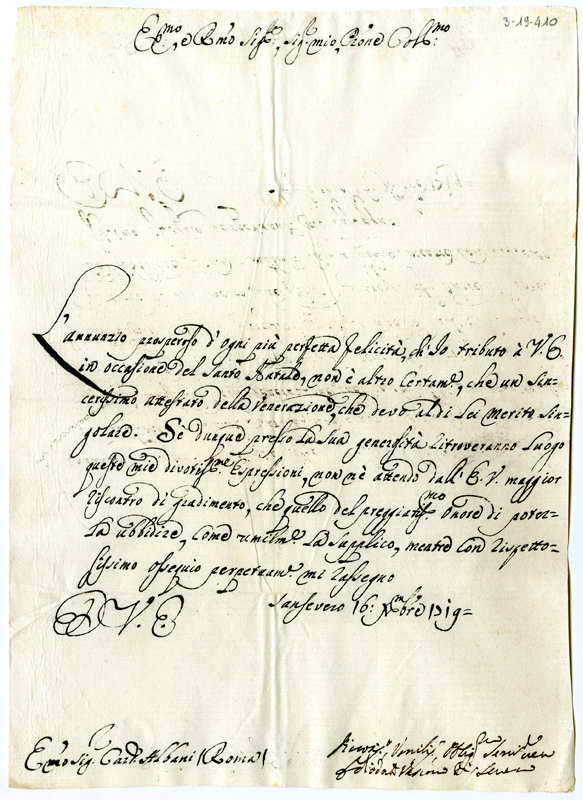 3-19-410
Em̃o, e Rm̃o Sig.re, Sig.r mio, Prõne Coll.mo
L'annunzio prosperoso d'ogni più perfetta felicità, ch'Io tributo à V. E.
in occasione del Santo Natale, non è altro certam.e, che un sin=
cerissimo attestato della venerazione, che devo al di Lei merito sin=
golare. Se dunque presso la sua generosità ritroveranno luogo
queste mie divotiss.me espressioni, non nè attendo dall'E. V. maggior
riscontro di gradimento, che quello del preggiatiss.mo onore di poter=
la ubbidire, come umilm.e la supplico, mentre con rispetto=
sissimo ossequio perpetuam.e mi rassegno
D. V. E.
Sansevero 16: Xm̃bre 1719=
Em̃o Sig. Card. Albani (Roma)
Umiliss. Obblig. Servid.re